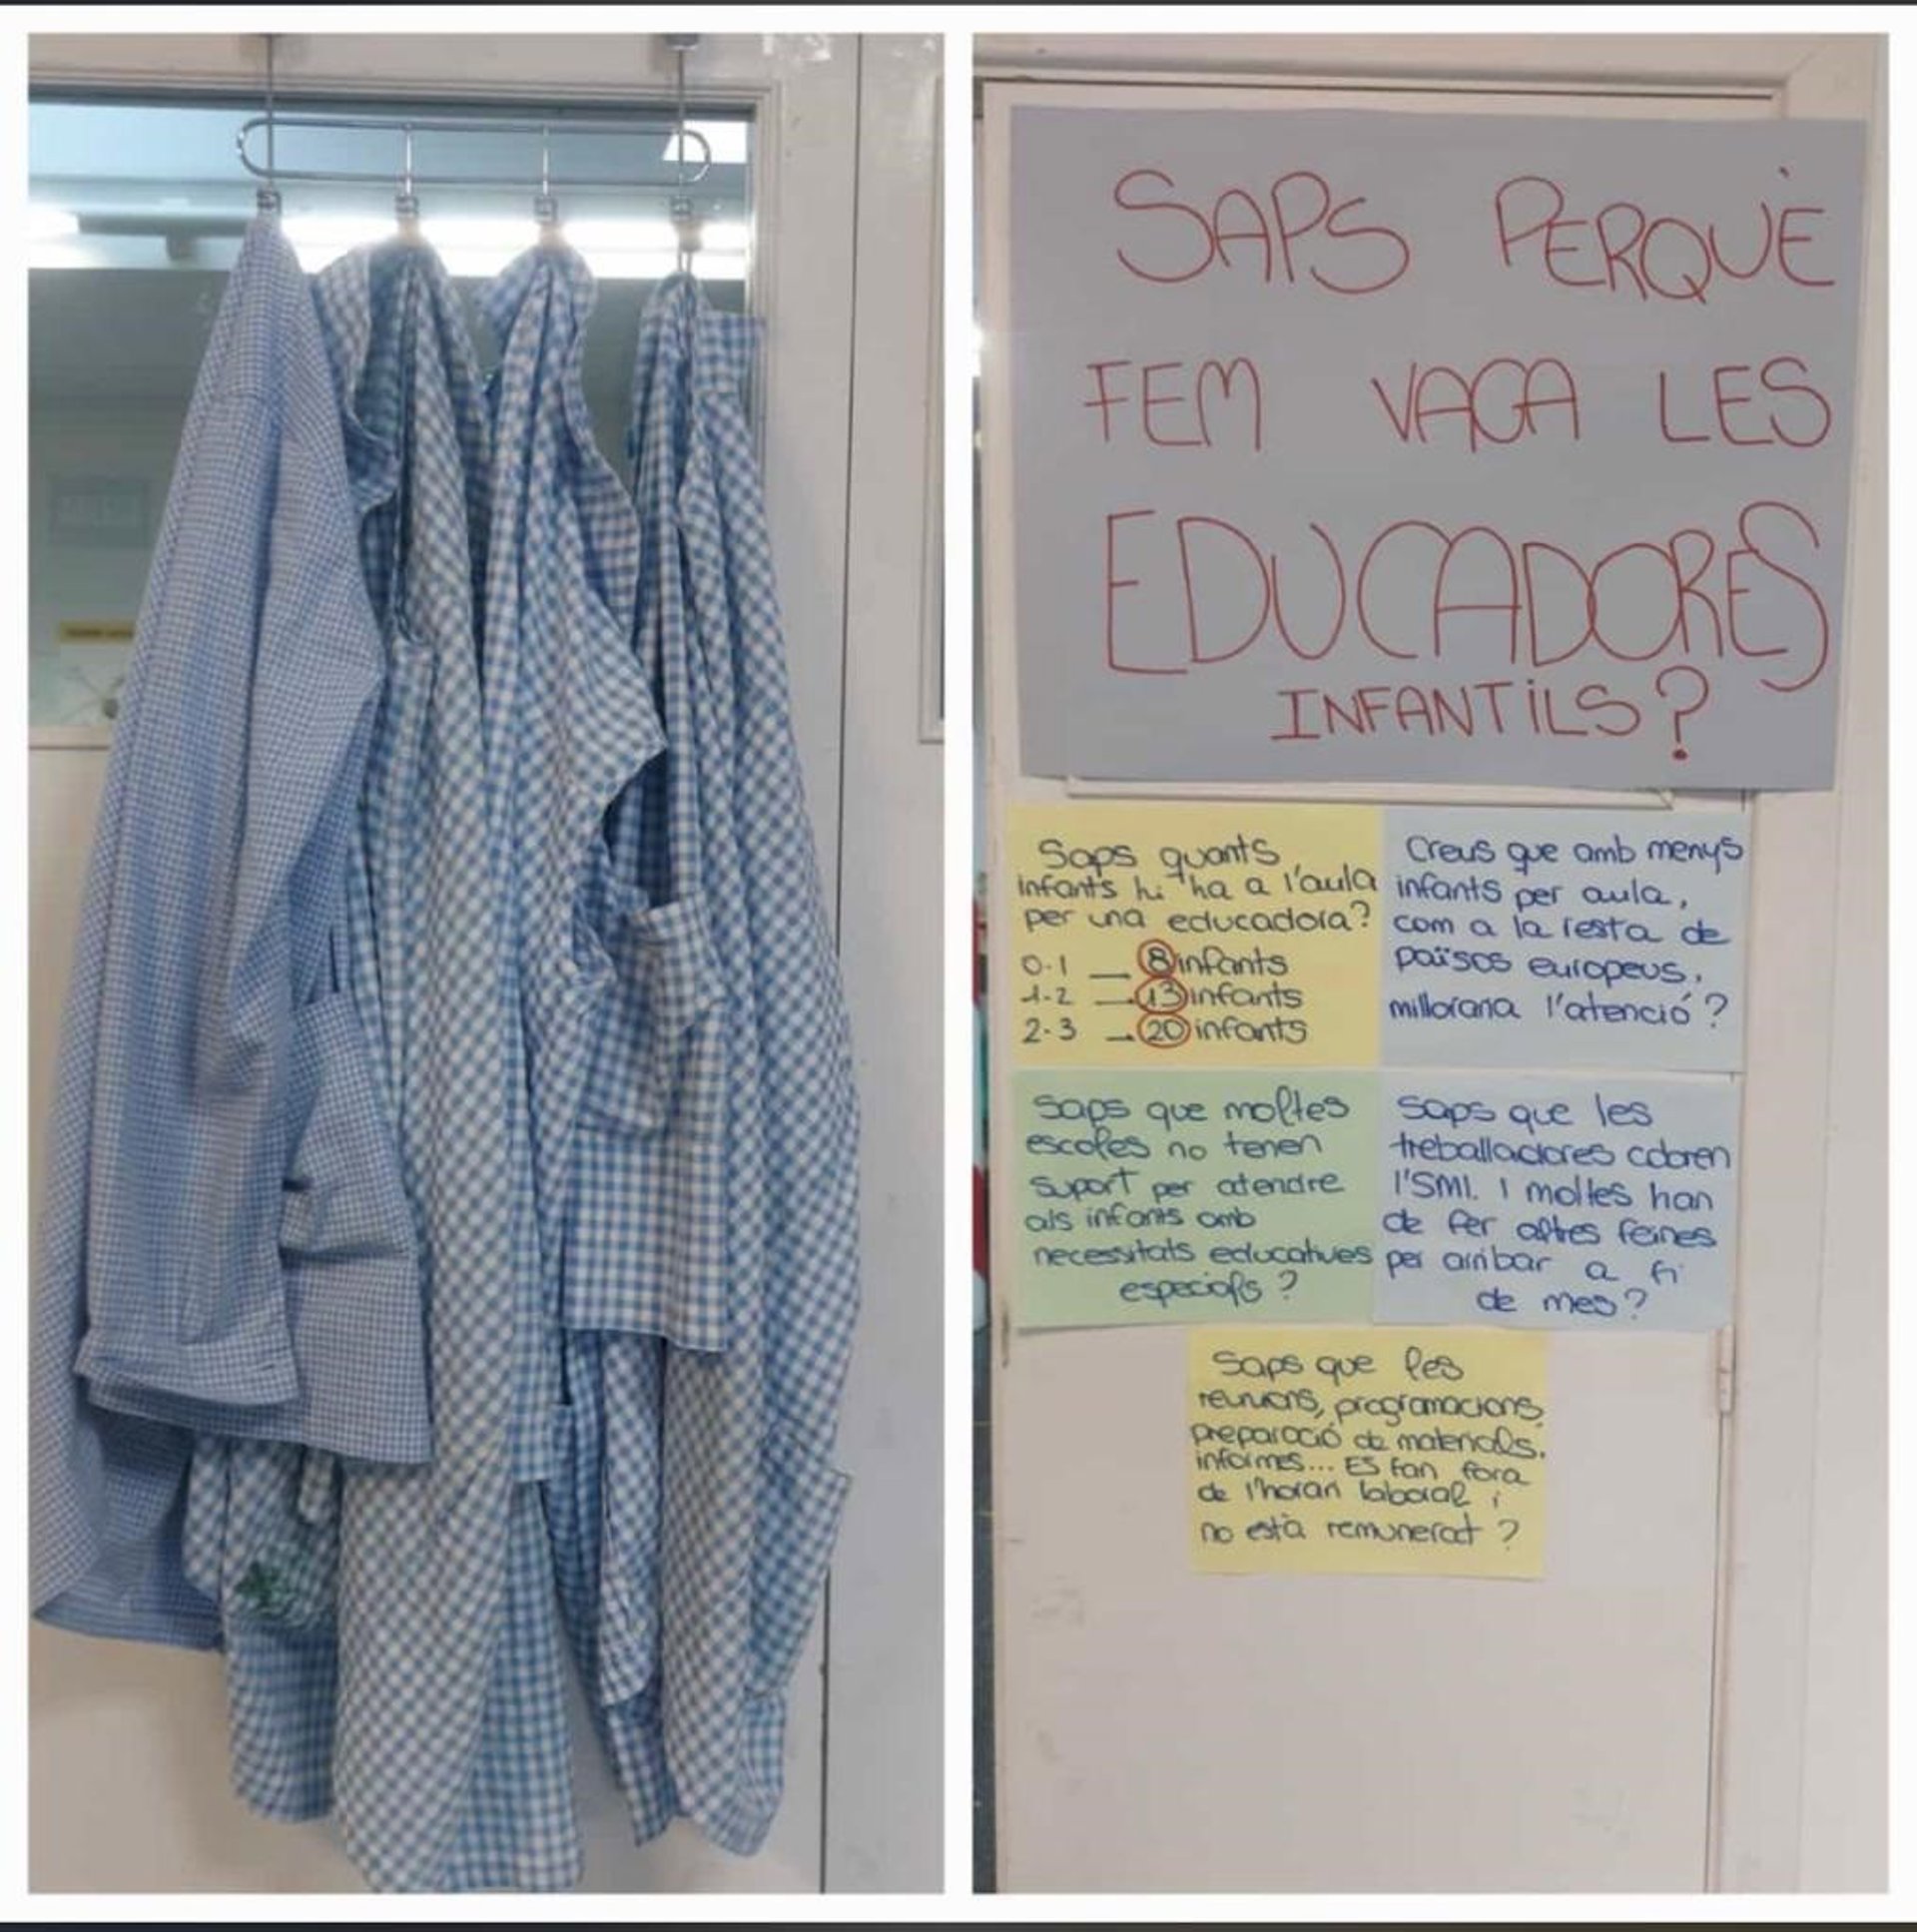 SAPS PERQUÈ
FEM VAGA LES
EDUCADORES
INFANTILS?
Saps quants
infants hi ha a l'aula
per una educadora?
0-1 — 8 infants
1-2 — 13 infants
2-3 — 20 infants
Creus que amb menys
infants per aula,
com a la resta de
països europeus,
milloraria l'atenció?
Saps que moltes
escoles no tenen
suport per atendre
als infants amb
necessitats educatives
especials?
Saps que les
treballadores cobren
l'SMI. I moltes han
de fer altres feines
per arribar a fi
de mes?
Saps que les
reunions, programacions,
preparació de materials,
informes... Es fan fora
de l'horari laboral i
no està remunerat?